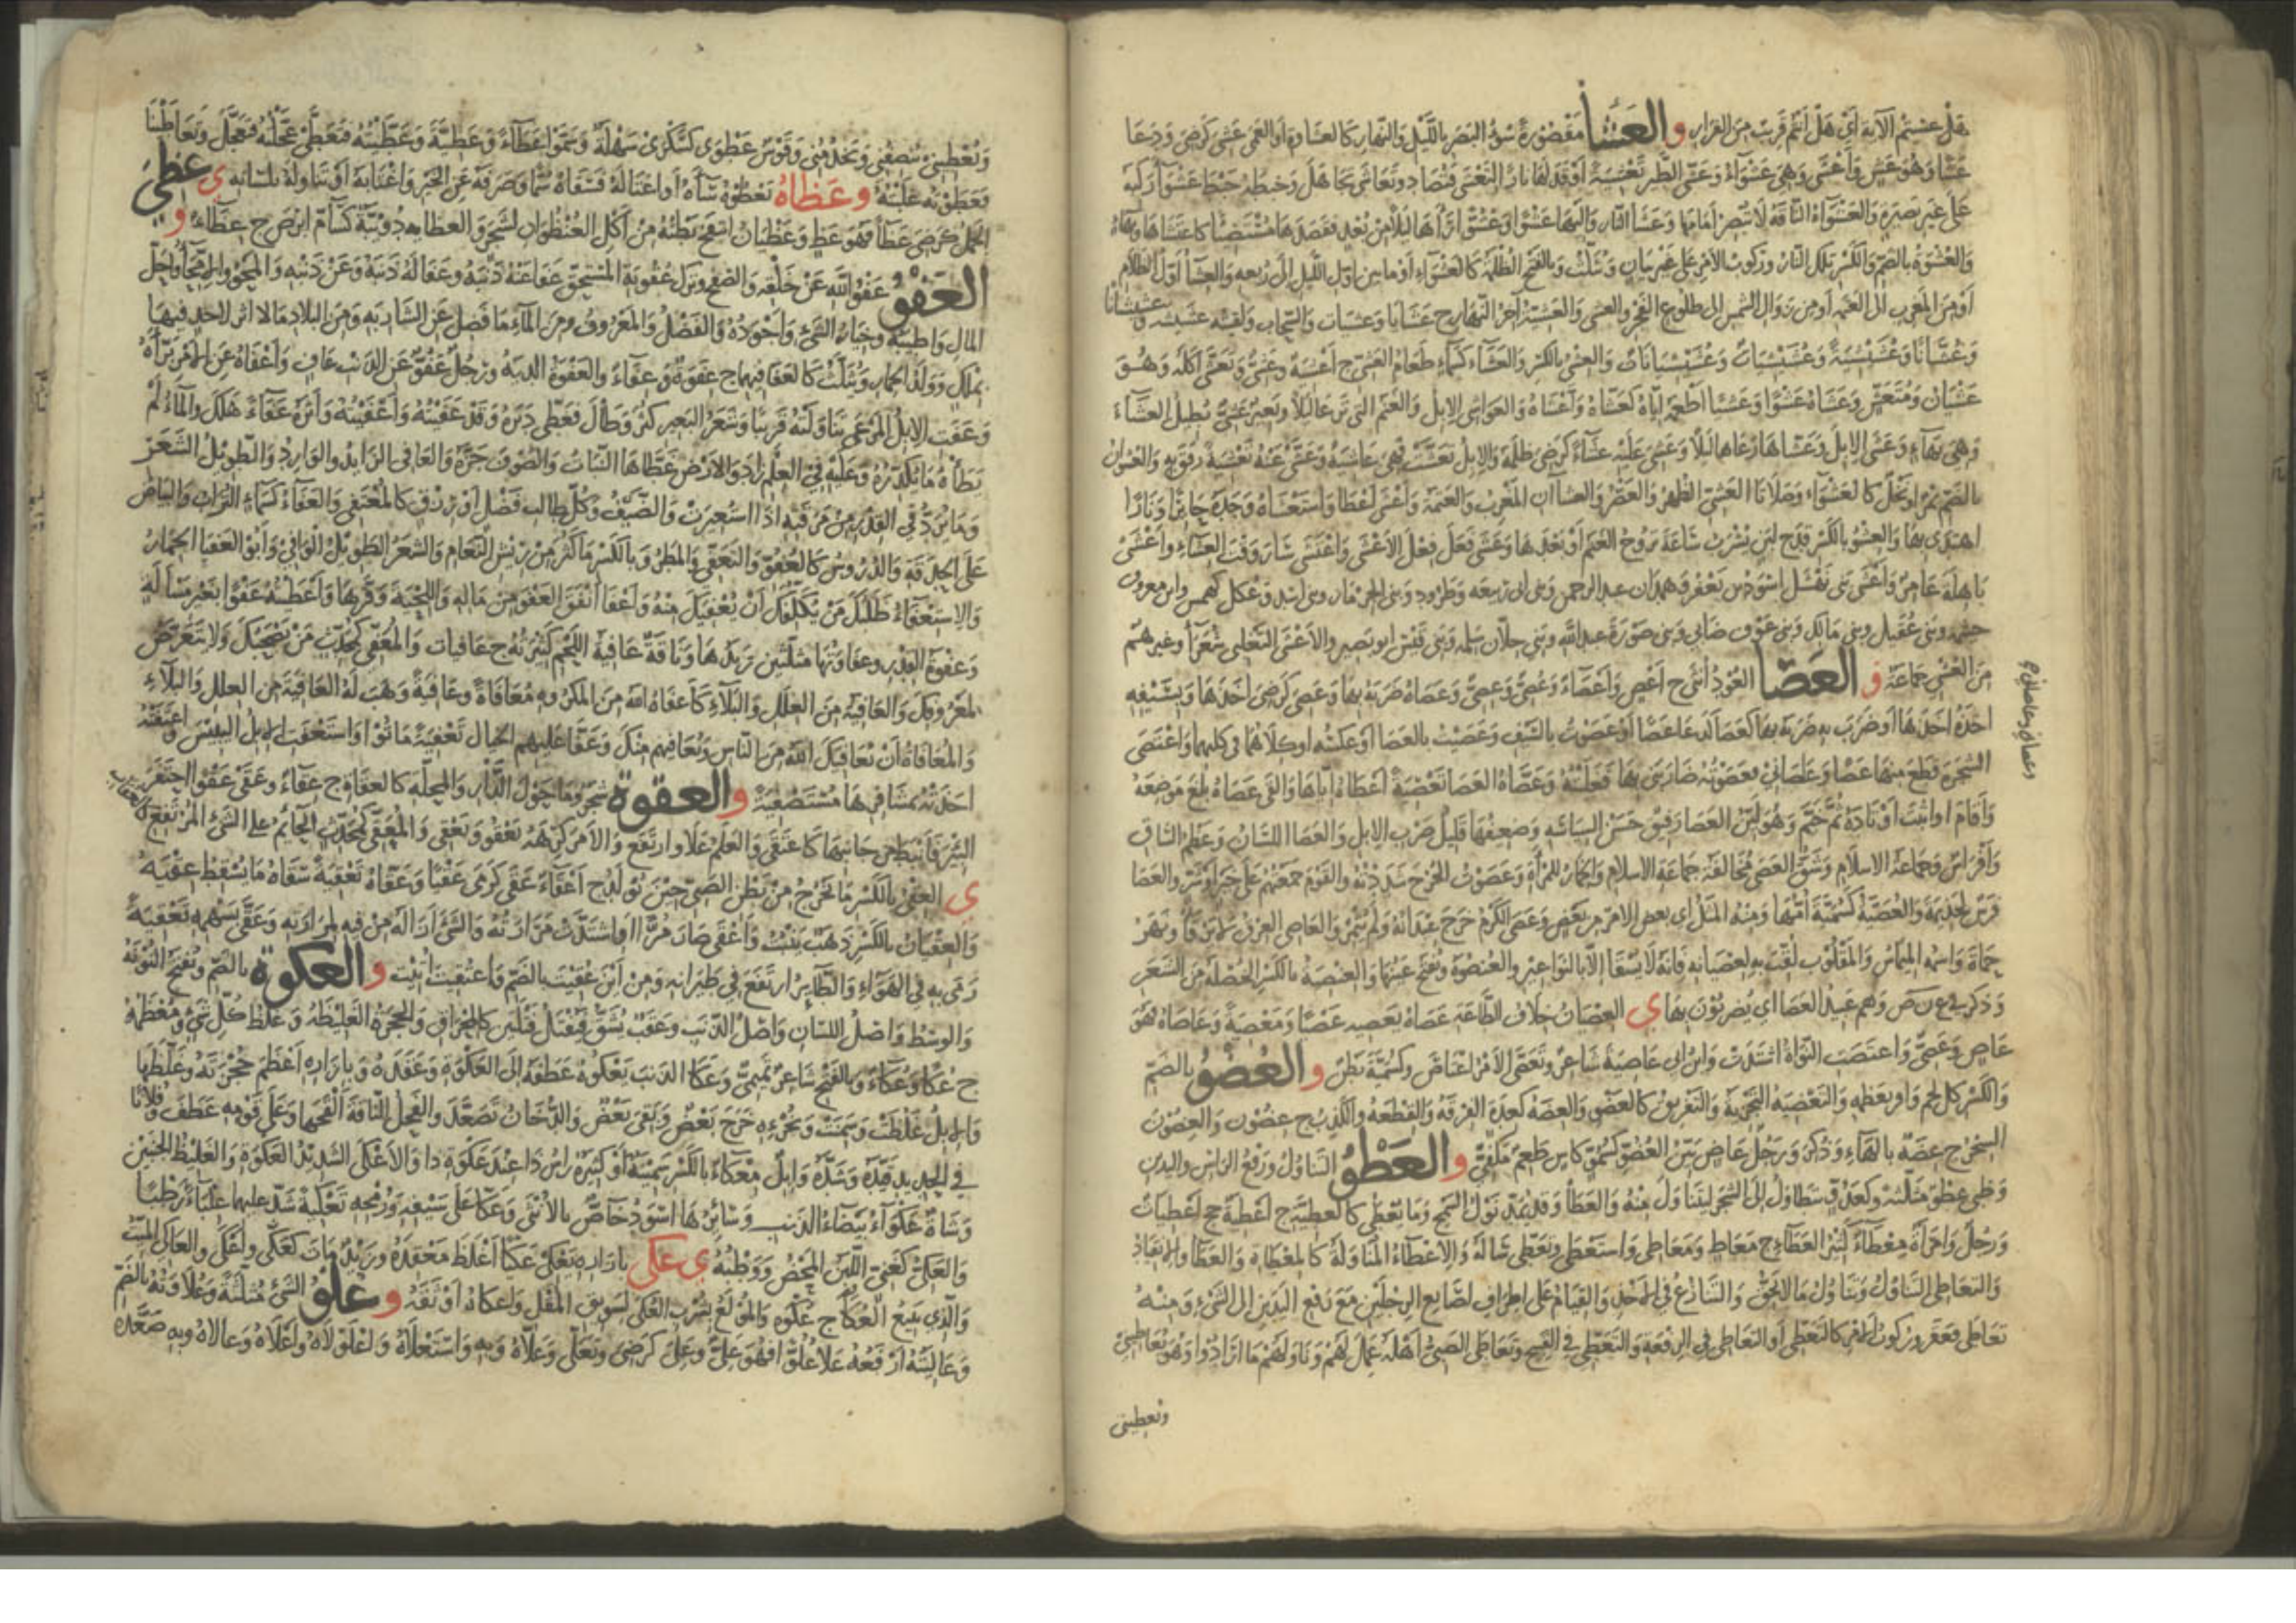 هل عسيتم الآية اي هل انتم قريب من الفرار و العشا مقصورة سوء البصر بالليل والنهار كالعشاوة او العمى عشى كرضي ودعا
عشا وهو عش واعشى وهي عشواء وعشى الطير تعشية اوقد لها نارا لتعشى فتصاد وتعاشى تجاهل وخبطه خبط عشواء ركبه
على غير بصيرة والعشواء الناقة لا تبصر امامها وعشا النار واليها عشوا وعشوا رآها ليلا من بعيد فقصدها مستضيا كاعتشاها وبها
والعشوة بالضم والكسر تلك النار وركوب الامر على غير بيان ويثلث وبالفتح الظلمة كالعشواء او ما بين اول الليل الى ربعه والعشا اول الظلام
او من المغرب الى العتمة او من زوال الشمس الى طلوع الفجر والعشي والعشية آخر النهار ج عشايا وعشيات والسحاب ولقيته عشيشة وعشيشانا
وعشانا وعشيشية وعشيشيات وعشيشيانات والعشي بالكسر والعشاء كسماء طعام العشي ج اعشية وعشى وتعشى اكله وهو
عشيان ومتعش وعشاه عشوا وعشيا اطعمه اياه كعشاه واعشاه والعواشي الابل والغنم التي ترعى ليلا وبعير عشي يطيل العشاء
وهي بهاء وعشى الابل وعشاها رعاها ليلا وعشي عليه عشاء كرضي ظلمه والابل تعشت فهي عاشية وعشى عنه تعشية رفق به والعشوان
بالضم تمر او نخل كالعشواء وصلاتا العشي الظهر والعصر والعشاآن المغرب والعتمة واعشى اعطى واستعشاه وجده جائرا ونارا
اهتدى بها والعشو بالكسر قدح لبن يشرب ساعة تروح الغنم او بعدها وعشى فعل فعل الاعشى واعتشى سار وقت العشاء واعشى
باهلة عامر واعشى بني نهشل اسود بن يعفر وهمدان عبد الرحمن وبني ابي ربيعة وطرود وبني الحرماز وبني اسد وعكل كهمس وابن معروف
خيثمة وبني عقيل وبني مالك وبني عوف ضابي وبني ضورة عبد الله وبني جلان سلمة وبني قيس ابو بصير والاعشى التغلبي شعرآء وغيرهم
من العشي جماعة و العصا العود انثى ج اعص واعصاء وعصي وعصي وعصاه ضربه بها وعصي كرضي اخذها وبسيفه
اخذه اخذها او ضرب به ضربه بها كعصا كدعا عصا او عصوت بالسيف وعصيت بالعصا او عكسه او كلاهما في كليهما واعتصى
الشجرة قطع منها عصا وعاصاني فعصوته ضاربني بها فغلبته وعصاه العصا تعصية اعطاه اياها والقى عصاه بلغ موضعه
واقام او اثبت اوتاده ثم خيم وهو لين العصا رفيق حسن السياسة وضعيفها قليل ضرب الابل والعصا اللسان وعظم الساق
وافراس وجماعة الاسلام وشق العصى مخالفة جماعة الاسلام والخمار للمرأة وعصوت الجرح شددته والقوم جمعتهم على خير او شر والعصا
فرس لجذيمة والعصية كسمية امها ومنه المثل اي بعض الامر من بعض وعصى الكرم خرج عيدانه ولم يثمر والعاصي العرق لا يرقا ونهر
حماة واسمه الميماس والمقلوب لقب به لعصيانه فانه لا يسقي الا بالنواعير والعنصوة وتفتح عينها والعنصية بالكسر الخصلة من الشعر
وذكر في ع ن ص وهم عبيد العصا اي يضربون بها ي العصيان خلاف الطاعة عصاه يعصيه عصيا ومعصية وعاصاه فهو
عاص وعصي واعتصت النواة اشتدت وابن ابي عاصية شاعر وتعصى الامر اعتاص وكسمية بطن و العضو بالضم
والكسر كل لحم وافر بعظمه والتعضية التجزية والتفريق كالعضو والعضة كعدة الفرقة والقطعة والكذب ج عضون والعضون
السحر ج عضه بالهاء وذكر ورجل عاض بين العضو كسمو كاس طعم مكفي و العطو التناول ورفع الراس واليدين
وظبي عطو مثلثة وكعدو يتطاول الى الشجر ليتناول منه والعطا وقد يمد نولك السمح وما يعطى كالعطية ج اعطية جج اعطيات
ورجل وامرأة معطاء كثير العطاء ج معاط ومعاطي واستعطى وتعطى سأله والاعطاء المناولة كالمعطاة والعطا والانقياد
والتعاطي التناول وتناول ما لا يحق والتنازع في الاخذ والقيام على اطراف اصابع الرجلين مع رفع اليدين الى الشيء ومنه
تعاطى فعقر وركوب الامر كالتعطي او التعاطي في الرفعة والتعطي في القبيح وتعاطى الصبي اهله عمل لهم وناولهم ما ارادوا وهو يعاطيني
ويعطيني
وعصاني وعاصاني ج
ويعطيني ينصفني ويخدمني وقوس عطوى كسكرى سهلة وسموا عطاء وعطية وعطيته فتعطى عجلته فتعجل وتعاطينا
فعطوته غلبته و عظاه تعظوه ساءه او اغتاله فسقاه سما وصرفه عن الخير واغتابه او تناوله بلسانه ي عظى
الجمل كرضي عظا فهو عظ وعظيان انتفخ بطنه من اكل العنظوان لشجر والعظاية دويبة كسام ابرص ج عظاء و
العفو عفو الله عن خلقه والصفح وترك عقوبة المستحق عفا عنه ذنبه وعفا له ذنبه وعن ذنبه والمحو والامحاء واحل
المال واطيبه وخيار الشيء واجوده والفضل والمعروف ومن الماء ما فضل عن الشاربة ومن البلاد مالا اثر لاحد فيها
بملك وولد الحمار ويثلث كالعفا فيهما ج عفوة وعفاء والعفوة الدية ورجل عفو عن الذنب عاف واعفاه عن الامر برأه
وعفت الابل المرعى تناولته قريبا وشعر البعير كثر وطال فغطى دبره وقد عفيته واعفيته واثره عفاء هلك والماء لم
يطأه ما يكدره وعليه في العلم زاد والارض غطاها النبات والصوف جزه والعافي الرائد والوارد والطويل الشعر
وما يرد في القدر من مرقة اذا استعيرت والضيف وكل طالب فضل او رزق كالمعتفي والعفاء كسماء التراب والبياض
على الحدقة والدروس كالعفو والتعفي والمطر وبالكسر ما كثر من ريش النعام والشعر الطويل الوافي وابو العفا الحمار
والاستعفاء طلبك من يكلفك ان يعفيك منه واعفا انفق العفو من ماله واللحية وفرها واعطيته عفوا بغير مسألة
وعفوة القدر وعفاوتها مثلثين زبدها وناقة عافية اللحم كثيرته ج عافيات والمعفي كمحدث من يصحبك ولا يتعرض
لمعروفك والعافية من العلل والبلاء كاعفاه الله من المكروه معافاة وعافية وهب له العافية من العلل والبلاء
والمعافاة ان يعافيك الله من الناس ويعافيهم منك وعفا عليهم الخيال تعفية ماتوا واستعفت الابل اليبيس واعتفته
اخذته بمشافرها مستصفية و العقوة شجر وما حول الدار والمحلة كالعقاة ج عقاء وعقى عقوا احتفر
البئر فانبط من جانبها كاعتقى والعلم علا وارتفع والامر كرهه يعقو ويعقي والمعقي كمحدث الحائم على الشيء المرتفع كالعقاب
ي العقي بالكسر ما يخرج من بطن الصبي حين يولد ج اعقاء عقى كرمى عقيا وعقاه تعقية سقاه ما يسقط عقيه
والعقيان بالكسر ذهب ينبت واعقى صار مرا او اشتدت مرارته والشيء ازاله من فيه لمرارته وعقى بسهمه تعقية
رمى به في الهواء والطاير ارتفع في طيرانه ومن اين عقيت بالضم واعتقيت اتيت و العكوة بالضم وتفتح النونة
والوسط واصل اللسان واصل الذنب وعقب يشق فيفتل فتلين كالمخراق والحجزة الغليظة وغلظ كل شيء ومعظمه
ج عكا وعكاء وبالفتح شاعر تميمي وعكا الذنب يعكوه عطفه الى العكوة وعقده وبازاره اعظم حجزته وغلظها
والابل غلظت وسمنت وبخرئه خرج بعض وبقي بعض والدخان تصعد والفحل الناقة القحها وعلى قومه عطف وفلانا
في الحديد قيده وشده وابل معكاء بالكسر سمينة او كثيرة راس ذا عند عكوة ذا والاعكى الشديد العكوة والغليظ الجنبين
وشاة عكواء بيضاء الذنب وسائرها اسود خاص بالانثى وعكا على سيفه ورمحه تعكية شد عليهما علباء رطبا
والعكي كغني اللبن المحض ووطبه ي عكى بازاره يعكى عكيا اغلظ معقده وزيد مات كعكى واعكى والعاكي الميت
والذي يبيع العكا ج عكوة والمولع بشرب العكي لسويق المقل واعكاه اوثقه و علو الشيء مثلثة وعلاوته بالضم
وعاليته ارفعه علا علوا فهو علي وعلي كرضي وتعلى وعلاه وبه واستعلاه واعلولاه واعلاه وعالاه وبه صعده